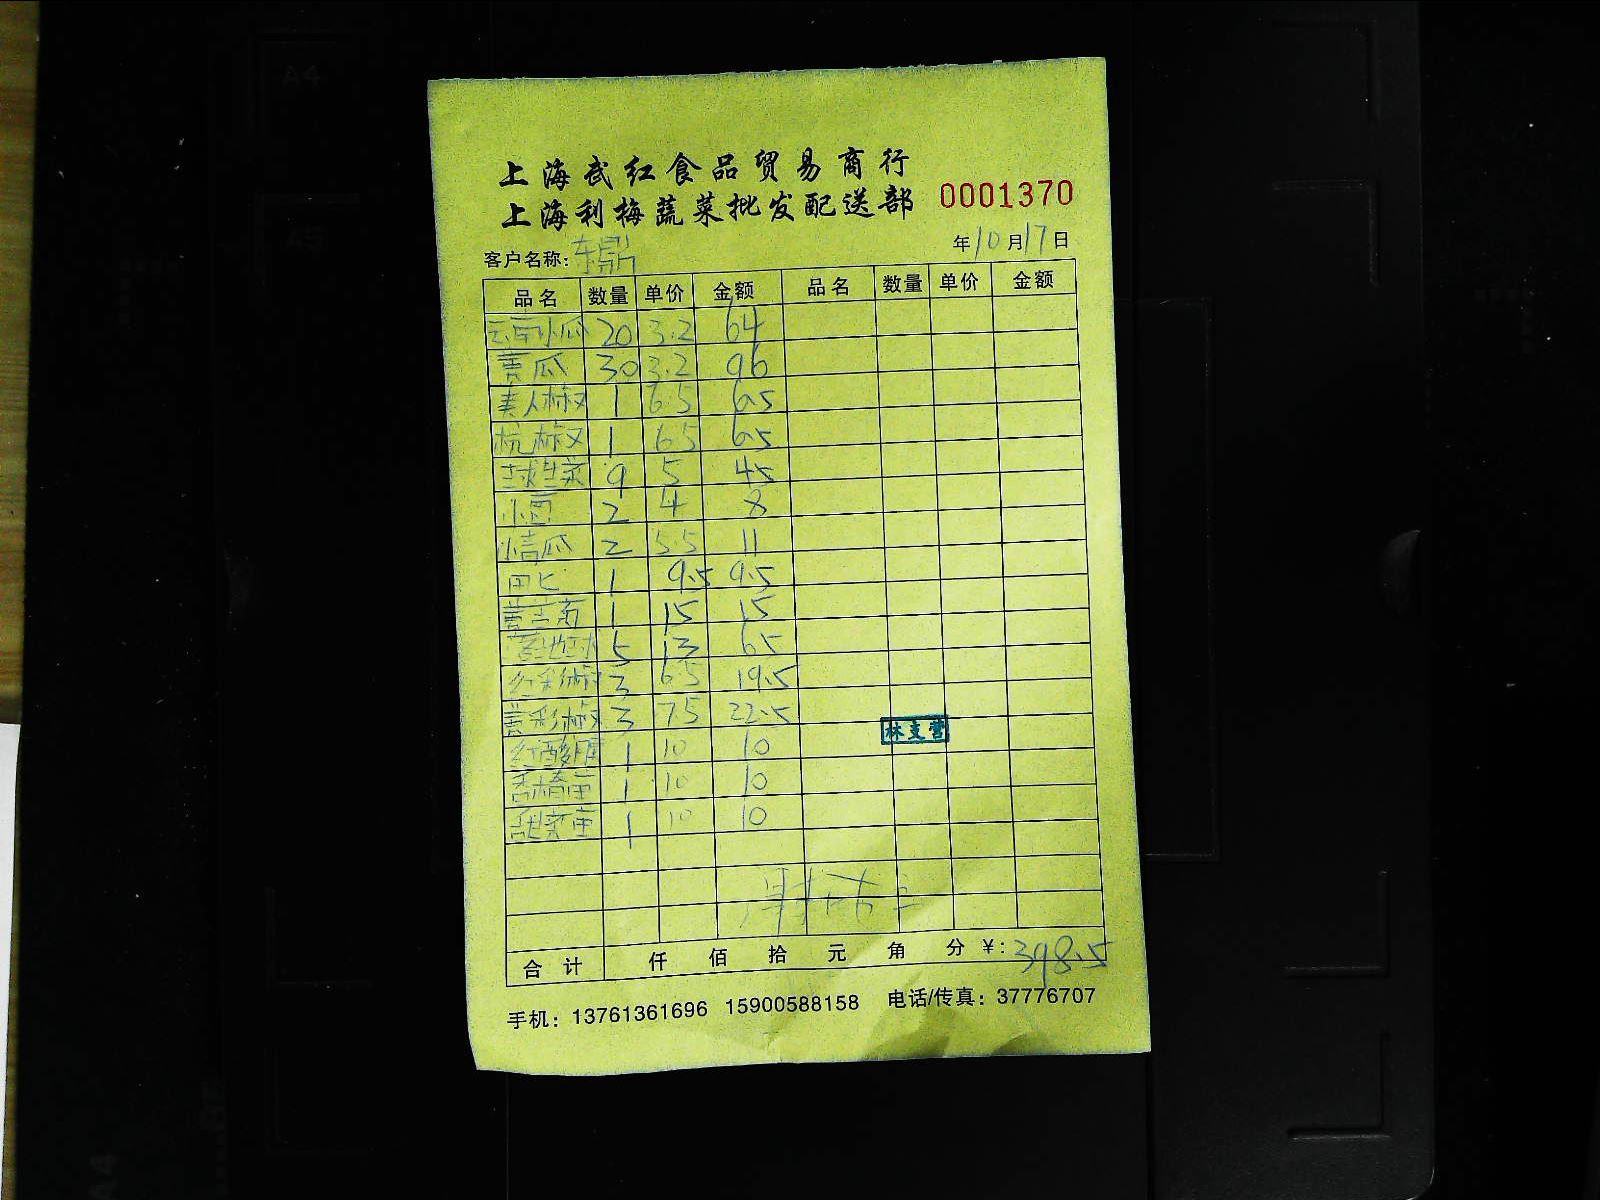 上海武红食品贸易商行
上海利梅蔬菜批发配送部 0001370
客户名称: 东鼎 年10月17日
品名 数量 单价 金额 品名 数量 单价 金额
云南小瓜 20 3.2 64
黄瓜 30 3.2 96
美人椒 1 6.5 6.5
杭椒 1 6.5 6.5
球生菜 9 5 45
小 2 4 8
小青瓜 2 5.5 11
1 9.5 9.5
1 15 15
5 13 65
红彩椒 3 6.5 19.5
黄彩椒 3 7.5 22.5
红酸膜 1 10 10
香椿苗 1 10 10
甜菜苗 1 10 10
林支营
合计 仟 佰 拾 元 角 分 ¥: 398.5
手机: 13761361696 15900588158 电话/传真: 37776707